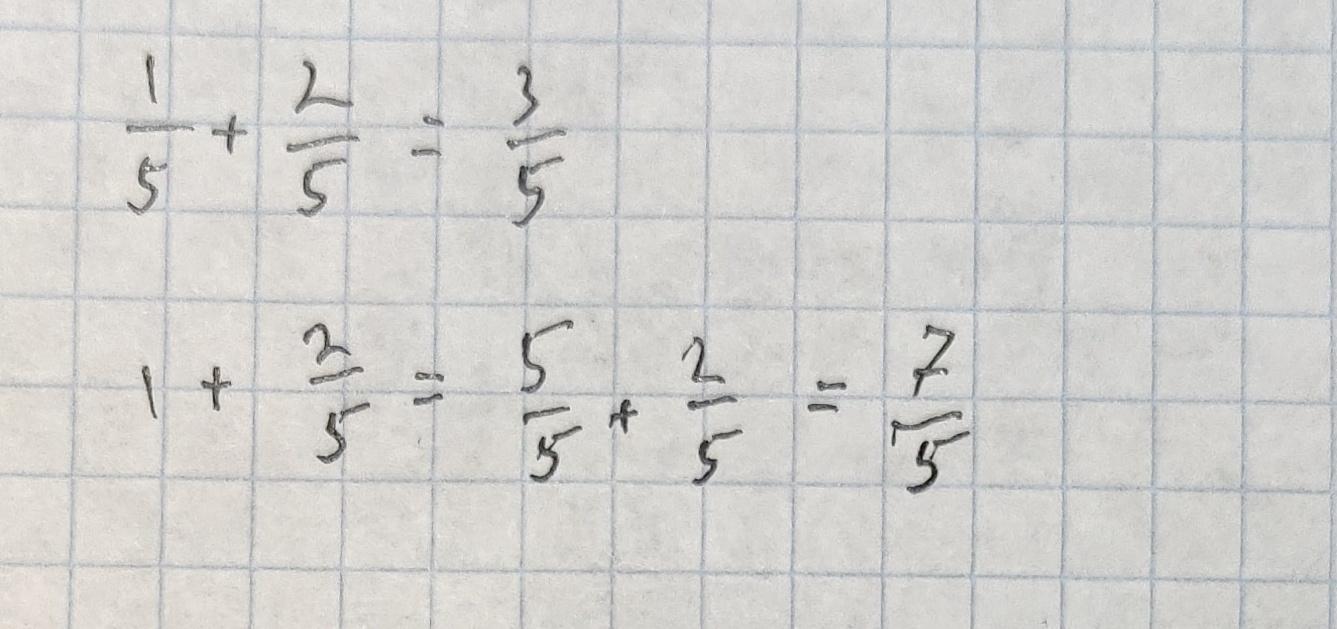 1/5 + 2/5 = 3/5
1 + 2/5 = 5/5 + 2/5 = 7/5